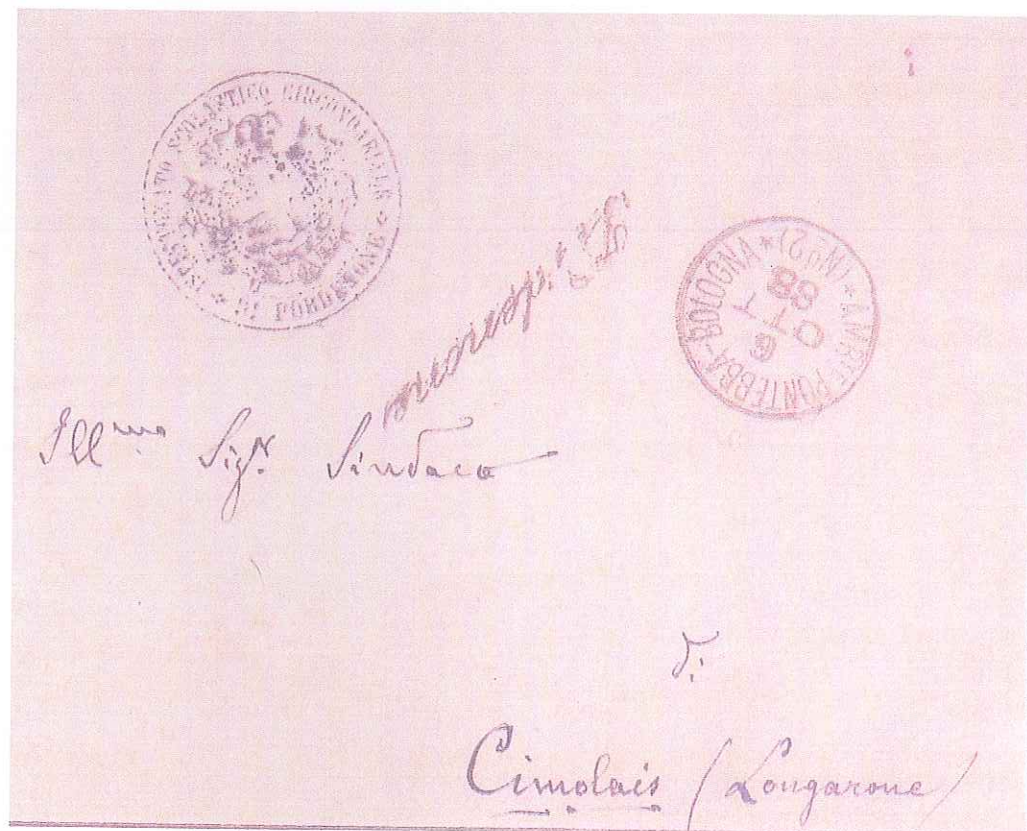 ISPETTORATO SCOLASTICO CIRCONDARIALE
* DI PORDENONE *
AMB.TE PONTEBBA-BOLOGNA * (Nº2) *
6
OTT
88
Ill.mo Sigr. Sindaco
di
Cimolais (Longarone)